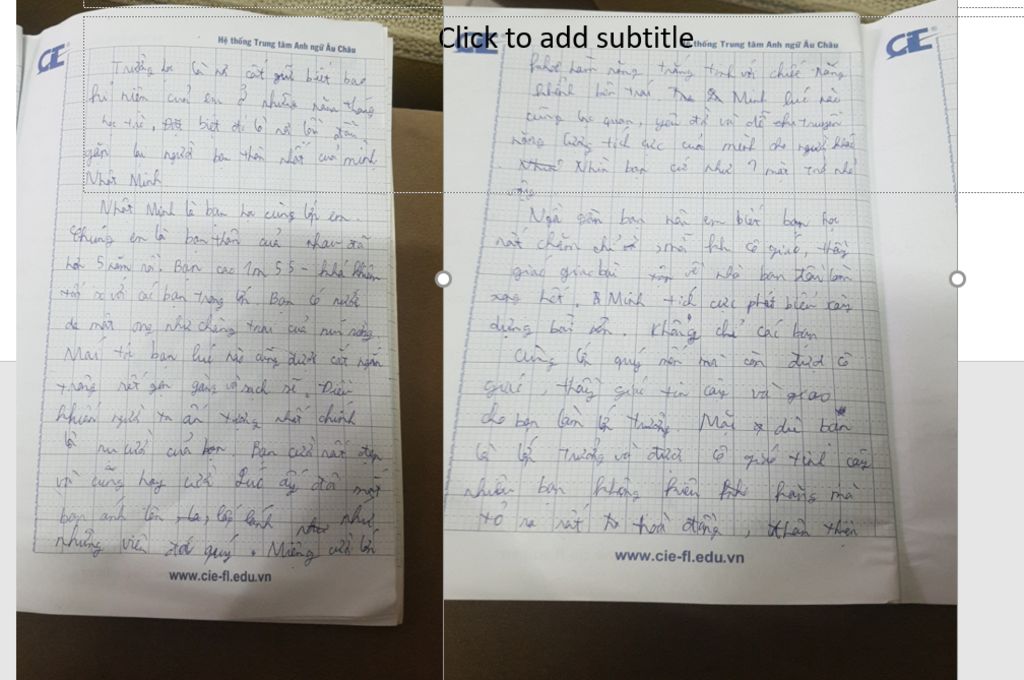 Click to add subtitle
CE
Hệ thống Trung tâm Anh ngữ Âu Châu
Trường là nơi cất giữ biết bao
kỉ niệm của em ở những năm tháng
học trò, biệt là nơi lần đầu
gặp người bạn thân nhất của mình
Nhật Minh
Nhật Minh là bạn học cùng lớp em.
Chúng em là bạn thân của nhau đã
hơn 5 năm rồi. Bạn cao 1m55 - khá khiêm
tốn so với các bạn trong lớp. Bạn có nước
da mật ong như chàng trai của núi rừng.
Mái tóc bạn lúc nào cũng được cắt ngắn
trông rất gọn gàng và sạch sẽ. Điều
khiến người ta ấn tượng nhất chính
là nụ cười của bạn. Bạn cười rất đẹp
và cũng hay cười. Lúc ấy đôi mắt
bạn ánh lên, lấp lánh như
những viên đá quý. Miệng cười lộ
www.cie-fl.edu.vn
CE
Hệ thống Trung tâm Anh ngữ Âu Châu
hàm răng trắng tinh với chiếc răng
khểnh bên trái. Minh lúc nào
cũng lạc quan, yêu đời và dễ truyền
năng lượng tích cực của mình cho người khác
Nhìn bạn cứ như 1 mặt trời nhỏ
vậy.
Ngồi gần bạn nên em biết bạn học
rất chăm chỉ, mỗi khi cô giáo, thầy
giáo giao bài về nhà bạn đều làm
xong hết. Minh tích cực phát biểu xây
dựng bài. Không chỉ các bạn
cùng lớp quý mến mà còn được cô
giáo, thầy giáo tin cậy và giao
cho bạn làm lớp trưởng. Mặc dù bạn
là lớp trưởng và được cô giáo tin cậy
nhiều bạn không kiêu hãng mà
tỏ ra rất hoà đồng, thân thiện
www.cie-fl.edu.vn
CE